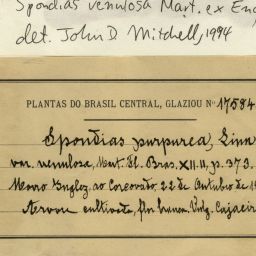 Spondias venulosa Mart. ex Eng
det. John D Mitchell, 1994
PLANTAS DO BRASIL CENTRAL, GLAZIOU Nº 17584
Spondias purpurea, Linn
var. venulosa, Mart. Fl. Bras. XII. II, p. 373.
Morro Inglez, ao Corcovado. 22 de Outubro de 1
cultivata, flor Vulg. Cajaeir